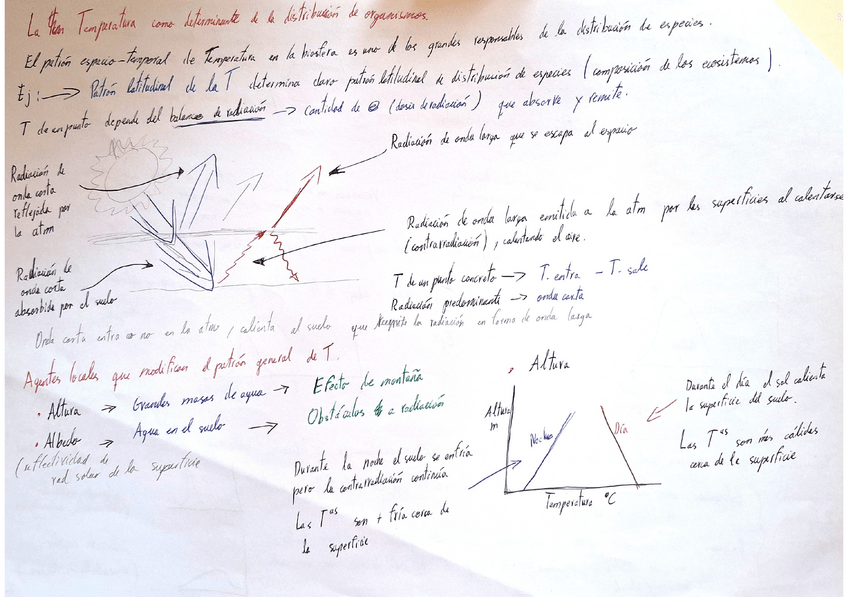 La Temperatura como determinante de la distribución de organismos.
El patrón espacio-temporal de Temperatura en la biosfera es uno de los grandes responsables de la distribución de especies.
Ej: → Patrón latitudinal de la T determina claro patrón latitudinal de distribución de especies (composición de los ecosistemas).
T de un punto depende del balance de radiación → cantidad de (dosis de radiación) que absorve y remite.
Radiación de onda larga que se escapa al espacio
Radiación de
onda corta
reflejada por
la atm
Radiación de onda larga emitida a la atm por las superficies al calentarse
(contrarradiación), calentando el aire.
Radiación de
onda corta
absorbida por el suelo
T de un punto concreto → T. entra - T. sale
Radiación predominante → onda corta
Onda corta entra no en la atmo, calienta al suelo que remite la radiación en forma de onda larga
Agentes locales que modifican el patrón general de T.
• Altura → Grandes masas de agua → Efecto de montaña
• Albedo → Agua en el suelo → Obstáculos a radiación
(reflectividad de
rad solar de la superficie
• Altura
Altura
m
Noche
Día
Temperatura °C
Durante el día el sol calienta
la superficie del suelo.
Las Tᵃˢ son más cálidas
cerca de la superficie
Durante la noche el suelo se enfría
pero la contrarradiación continúa
Las Tᵃˢ son + fría cerca de
la superficie